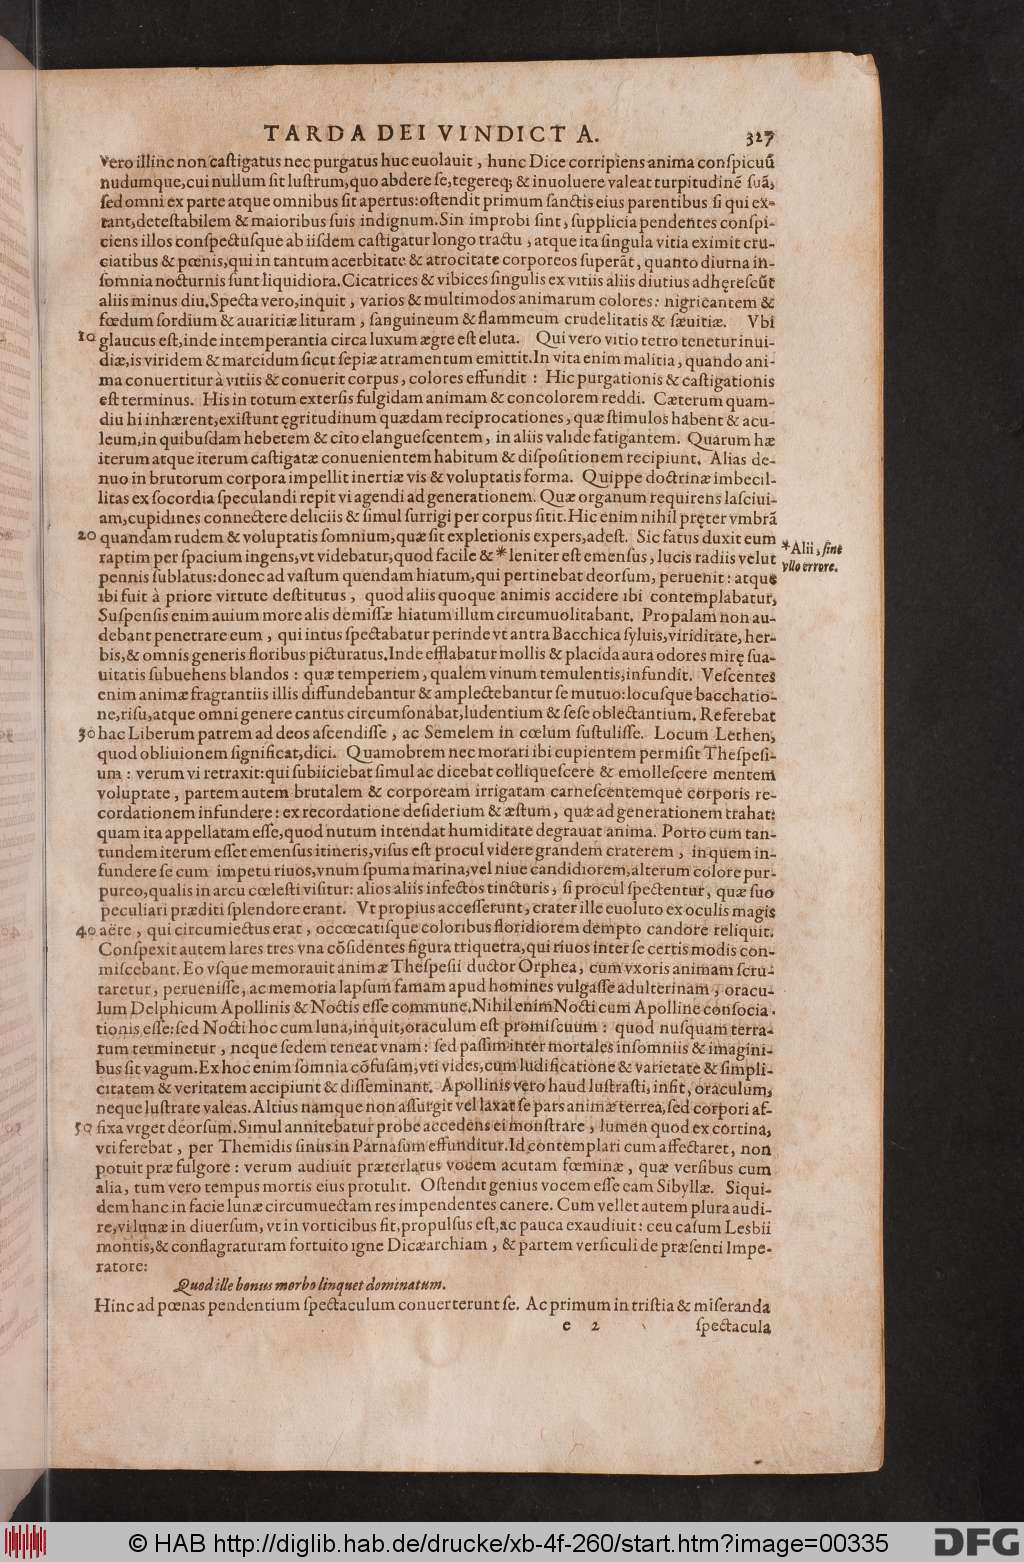 TARDA DEI VINDICTA. 327
Vero illinc non castigatus nec purgatus huc euolauit, hunc Dice corripiens anima conspicuũ
nudumque, cui nullum sit lustrum, quo abdere se, tegereq; & inuoluere valeat turpitudinẽ suã,
sed omni ex parte atque omnibus sit apertus: ostendit primum sanctis eius parentibus si qui ex-
tant, detestabilem & maioribus suis indignum. Sin improbi sint, supplicia pendentes conspi-
ciens illos conspectusque ab iisdem castigatur longo tractu, atque ita singula vitia eximit cru-
ciatibus & pœnis, qui in tantum acerbitate & atrocitate corporeos superãt, quanto diurna in-
somnia nocturnis sunt liquidiora. Cicatrices & vibices singulis ex vitiis aliis diutius adhęrescũt
aliis minus diu. Specta vero, inquit, varios & multimodos animarum colores: nigricantem &
fœdum sordium & auaritiæ lituram, sanguineum & flammeum crudelitatis & sæuitiæ. Vbi
10 glaucus est, inde intemperantia circa luxum ægre est eluta. Qui vero vitio tetro tenetur inui-
diæ, is viridem & marcidum sicut sepiæ atramentum emittit. In vita enim malitia, quando ani-
ma conuertitur à vitiis & conuerit corpus, colores effundit: Hic purgationis & castigationis
est terminus. His in totum extersis fulgidam animam & concolorem reddi. Cæterum quam-
diu hi inhærent, existunt ęgritudinum quædam reciprocationes, quæ stimulos habent & acu-
leum, in quibusdam hebetem & cito elanguescentem, in aliis valide fatigantem. Quarum hæ
iterum atque iterum castigatæ conuenientem habitum & dispositionem recipiunt. Alias de-
nuo in brutorum corpora impellit inertiæ vis & voluptatis forma. Quippe doctrinæ imbecil-
litas ex socordia speculandi repit vi agendi ad generationem. Quæ organum requirens lasciui-
am, cupidines connectere deliciis & simul surrigi per corpus sitit. Hic enim nihil pręter vmbrã
20 quandam rudem & voluptatis somnium, quæ sit expletionis expers, adest. Sic fatus duxit eum
raptim per spacium ingens, vt videbatur, quod facile & * leniter est emensus, lucis radiis velut
*Alii, sine
vllo errore.
pennis sublatus: donec ad vastum quendam hiatum, qui pertinebat deorsum, peruenit: atque
ibi fuit à priore virtute destitutus, quod aliis quoque animis accidere ibi contemplabatur,
Suspensis enim auium more alis demissæ hiatum illum circumuolitabant. Propalam non au-
debant penetrare eum, qui intus spectabatur perinde vt antra Bacchica syluis, viriditate, her-
bis, & omnis generis floribus picturatus. Inde efflabatur mollis & placida aura odores mirę sua-
uitatis subuehens blandos: quæ temperiem, qualem vinum temulentis, infundit. Vescentes
enim animæ fragrantiis illis diffundebantur & amplectebantur se mutuo: locusque bacchatio-
ne, risu, atque omni genere cantus circumsonabat, ludentium & sese oblectantium. Referebat
30 hac Liberum patrem ad deos ascendisse, ac Semelem in cœlum sustulisse. Locum Lethen,
quod obliuionem significat, dici. Quamobrem nec morari ibi cupientem permisit Thespesi-
um: verum vi retraxit: qui subiiciebat simul ac dicebat colliquescere & emollescere mentem
voluptate, partem autem brutalem & corpoream irrigatam carnescentemque corporis re-
cordationem infundere: ex recordatione desiderium & æstum, quæ ad generationem trahat:
quam ita appellatam esse, quod nutum intendat humiditate degrauat anima. Porto cum tan-
tundem iterum esset emensus itineris, visus est procul videre grandem craterem, in quem in-
fundere se cum impetu riuos, vnum spuma marina, vel niue candidiorem, alterum colore pur-
pureo, qualis in arcu cœlesti visitur: alios aliis infectos tincturis, si procul spectentur, quæ suo
peculiari præditi splendore erant. Vt propius accesserunt, crater ille euoluto ex oculis magis
40 aëre, qui circumiectus erat, occœcatisque coloribus floridiorem dempto candore reliquit.
Conspexit autem lares tres vna cõsidentes figura triquetra, qui riuos inter se certis modis con-
miscebant. Eo vsque memorauit animæ Thespesii ductor Orphea, cum vxoris animam scru-
taretur, peruenisse, ac memoria lapsum famam apud homines vulgasse adulterinam, oracu-
lum Delphicum Apollinis & Noctis esse commune. Nihil enim Nocti cum Apolline consocia-
tionis esse: sed Nocti hoc cum luna, inquit, oraculum est promiscuum: quod nusquam terra-
rum terminetur, neque sedem teneat vnam: sed passim inter mortales insomniis & imagini-
bus sit vagum. Ex hoc enim somnia cõfusam, vti vides, cum ludificatione & varietate & simpli-
citatem & veritatem accipiunt & disseminant. Apollinis vero haud lustrasti, insit, oraculum,
neque lustrare valeas. Altius namque non assurgit vel laxat se pars animæ terrea, sed corpori af-
50 fixa vrget deorsum. Simul annitebatur probe accedens ei monstrare, lumen quod ex cortina,
vti ferebat, per Themidis sinus in Parnasum effunditur. Id contemplari cum affectaret, non
potuit præ fulgore: verum audiuit præterlatus vocem acutam fœminæ, quæ versibus cum
alia, tum vero tempus mortis eius protulit. Ostendit genius vocem esse eam Sibyllæ. Siqui-
dem hanc in facie lunæ circumuectam res impendentes canere. Cum vellet autem plura audi-
re, vi lunæ in diuersum, vt in vorticibus fit, propulsus est, ac pauca exaudiuit: ceu casum Lesbii
montis, & conflagraturam fortuito igne Dicæarchiam, & partem versiculi de præsenti Impe-
ratore:
Quod ille bonus morbo linquet dominatum.
Hinc ad pœnas pendentium spectaculum conuerterunt se. Ac primum in tristia & miseranda
e 2 spectacula
© HAB http://diglib.hab.de/drucke/xb-4f-260/start.htm?image=00335
DFG